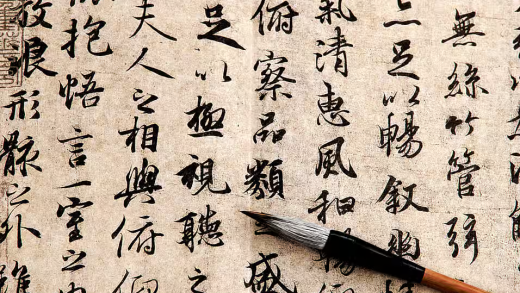 無絲竹管弦
亦足以暢敘幽情
氣清惠風和暢
俯察品類之盛
足以極視聽之
夫人之相與俯仰
抱悟言一室之內
放浪形骸之外雖